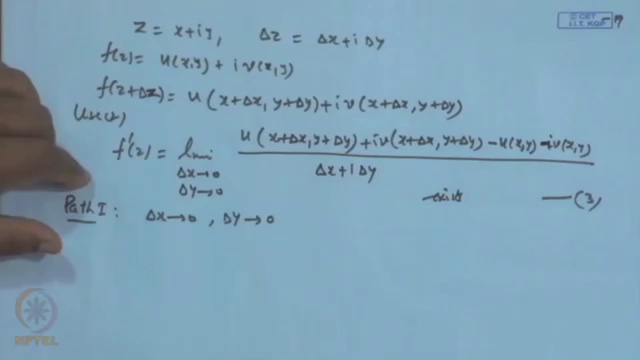 Z = x+iy, Δz = Δx+iΔy
f(z)= u(x,y) + i v(x,y)
f(z+Δz)= u(x+Δx, y+Δy)+i v(x+Δx, y+Δy)
f'(z) = lim Δx→0 Δy→0 u(x+Δx, y+Δy)+iv(x+Δx, y+Δy) – u(x,y) – iv(x,y) / Δx+iΔy
exist —(3)
Path I : Δx→0, Δy→0
© CET
I.I.T. KGP
NPTEL